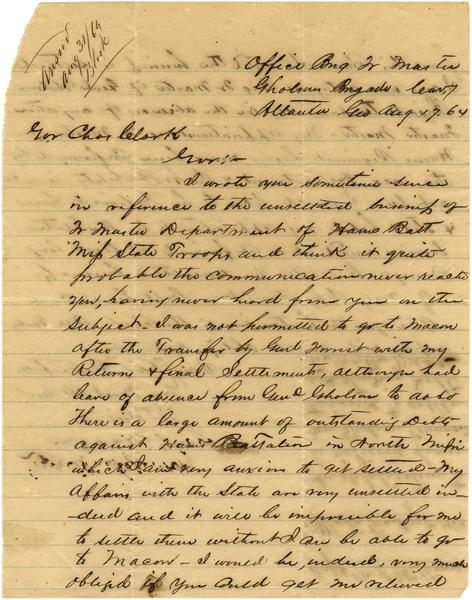 Answd
Aug 31/64
Office Brig Qr Master
Gholson Brigade Cavy
Atlanta Geo Aug 17, 64
Gov Chas Clark
Gov:-
I wrote you sometime since
in reference to the unsettled business of
Qr Master Department of Hams Batt
Miss State Troops and think it quite
probable the communication never reached
you, having never heard from you on the
Subject - I was not permitted to go to Macon
after the Transfer by Genl Forrest with my
Returns & final Settlements, although had
leave of absence from Genl Gholson to do so
There is a large amount of outstanding Debts
against Hams Battalion in North Missi
which I am very anxious to get settled - My
Affairs with the State are very unsettled in-
deed and it will be impossible for me
to settle them without I can be able to go
to Macon - I would be, indeed, very much
obliged if you could get me relieved